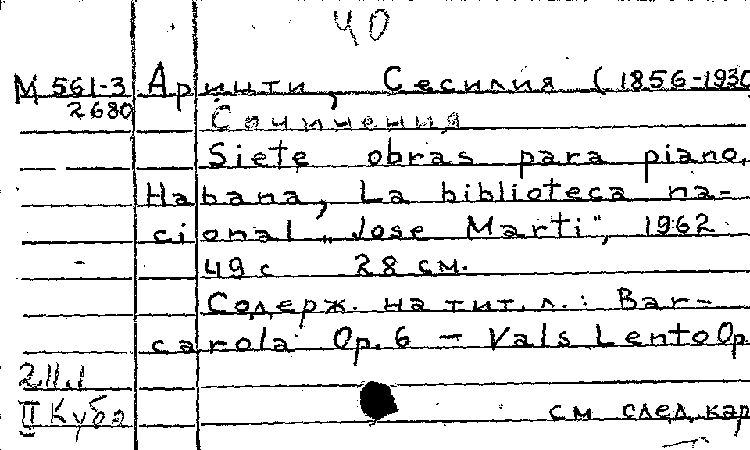 40
М 561-3 Аришти, Сесилия (1856-1930
2680
Сочинения
Siete obras para piano.
Habana, La biblioteca na-
cional „Jose Marti", 1962
49 с 28 см.
Содерж. на тит. л.: Bar-
carola Op. 6 — Vals Lento Op
2.11.1
II Куба см след кар